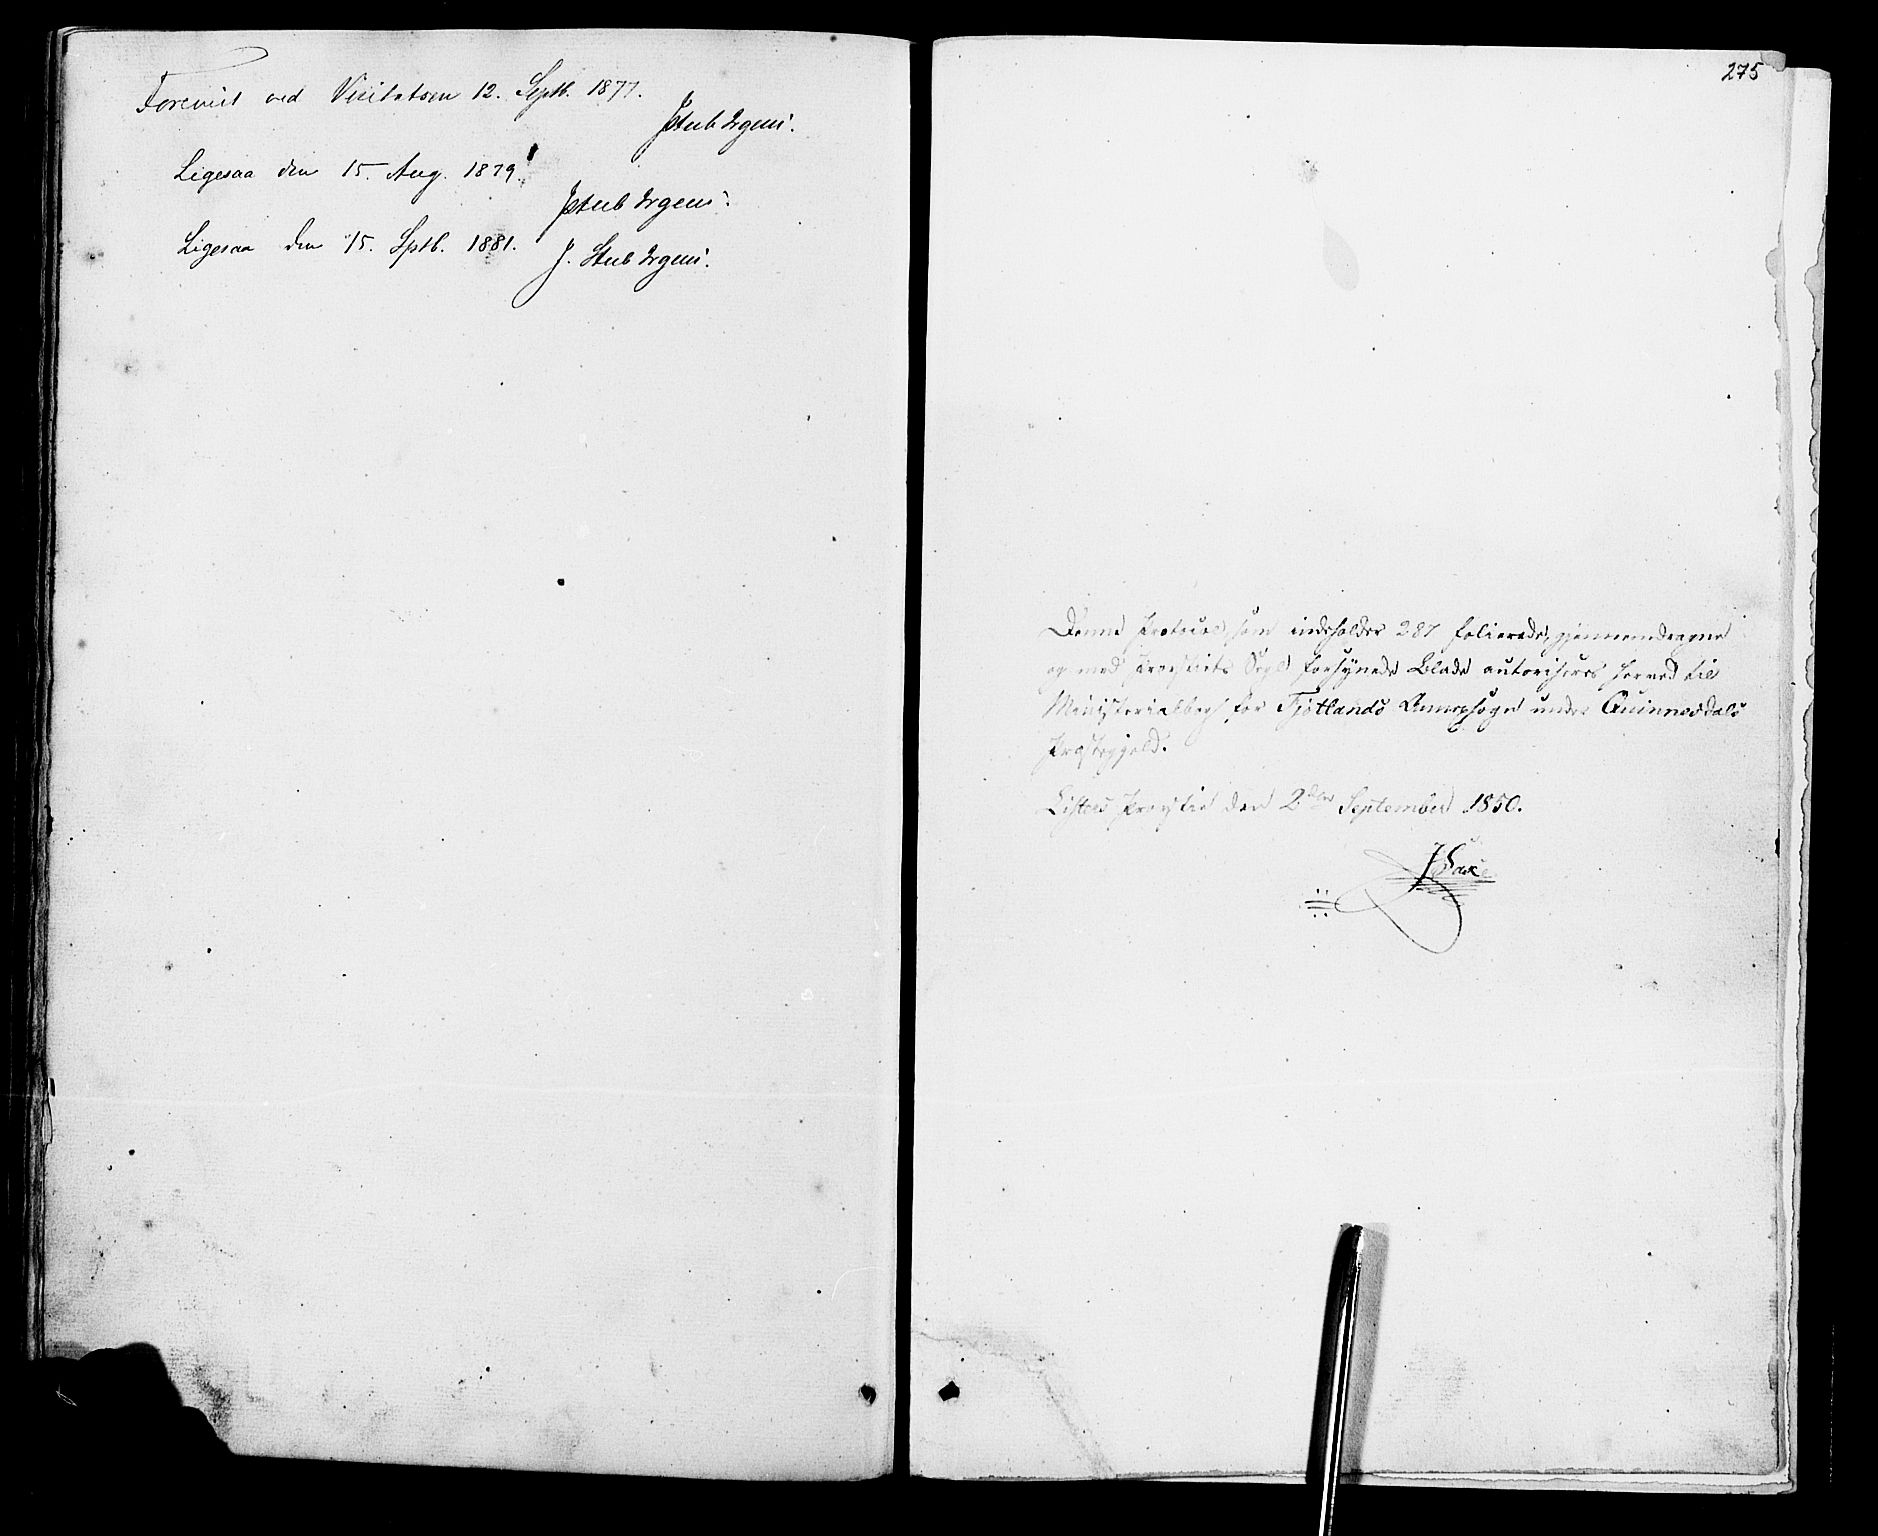 Forevist ved Visitatsen 12. Septb. 1877.
JStub Irgens.
Ligesaa den 15. Aug. 1879.
JStub Irgens.
Ligesaa den 15. Sptb. 1881.
J. Stub Irgens.
275
Denne Protocol, som indeholder 287 folierede, gjennemdragne
og med Provstiets Segl forsynede Blade autoriseres herved til
Ministerialbog for Fjotlands Annexsogn under Qvinnesdals
Præstegjeld.
Listers Provstie den 2den September 1850.